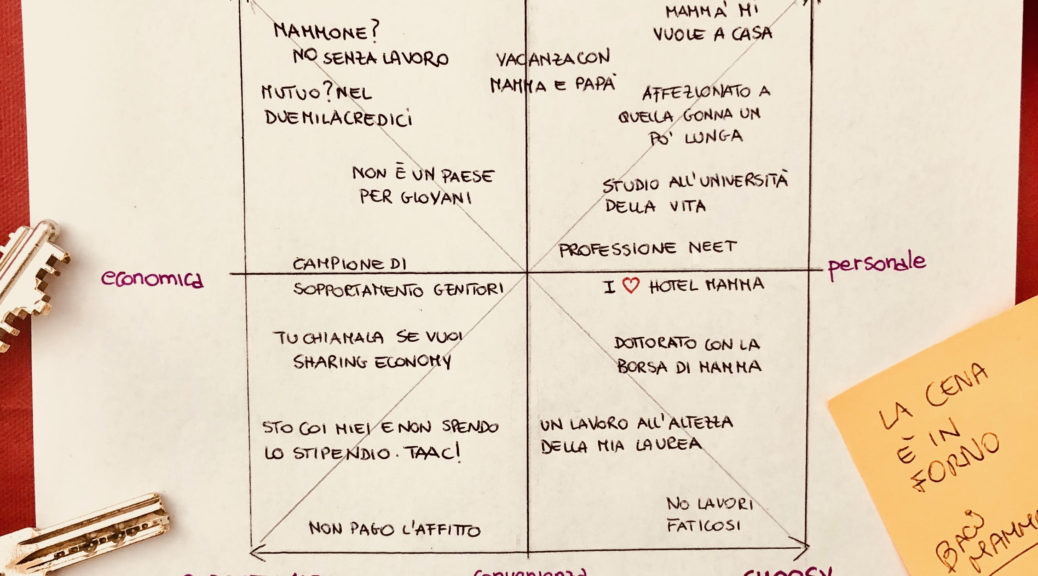 MAMMONE?
NO SENZA LAVORO
MUTUO? NEL
DUEMILACREDICI
NON È UN PAESE
PER GIOVANI
VACANZA CON
MAMMA E PAPÀ
MAMMÀ MI
VUOLE A CASA
AFFEZIONATO A
QUELLA GONNA UN
PO' LUNGA
STUDIO ALL'UNIVERSITÀ
DELLA VITA
PROFESSIONE NEET
economica
personale
CAMPIONE DI
SOPPORTAMENTO GENITORI
TU CHIAMALA SE VUOI
SHARING ECONOMY
STO COI MIEI E NON SPENDO
LO STIPENDIO. TAAC!
NON PAGO L'AFFITTO
I ♡ HOTEL MAMMA
DOTTORATO CON LA
BORSA DI MAMMA
UN LAVORO ALL'ALTEZZA
DELLA MIA LAUREA
NO LAVORI
FATICOSI
convenienza
CHOOSY
LA CENA
È IN
FORNO
BACI
MAMMA